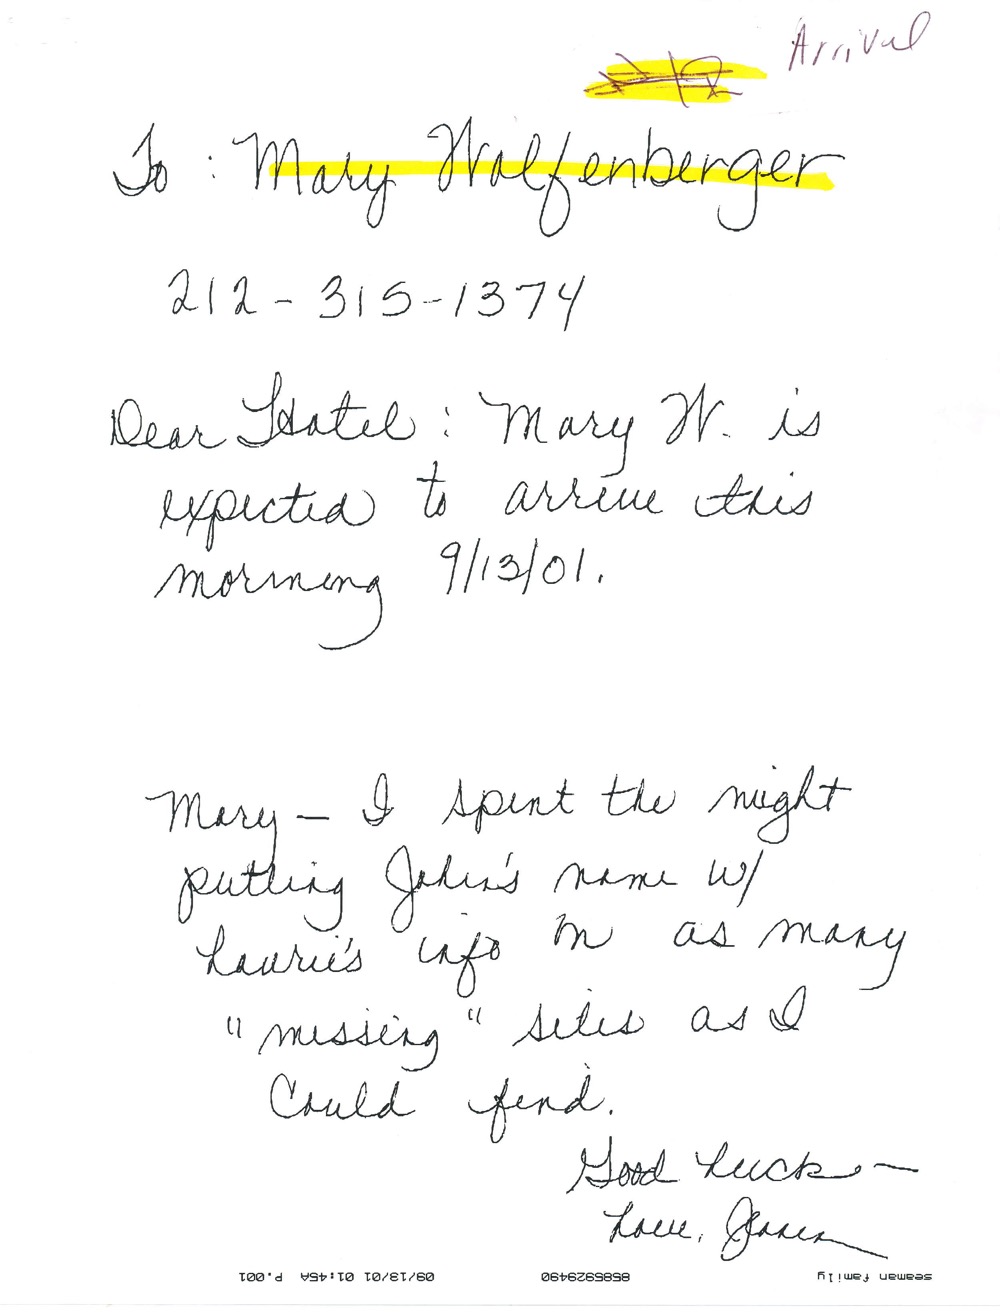 Arrival
To: Mary Wolfenberger
212-315-1374
Dear Hotel: Mary W. is
expected to arrive this
morning 9/13/01.
Mary – I spent the night
putting John's name w/
Laurie's info on as many
"missing" sites as I
could find.
Good Luck –
Love,
seaman family 8585929490 09/13/01 01:45A P.001